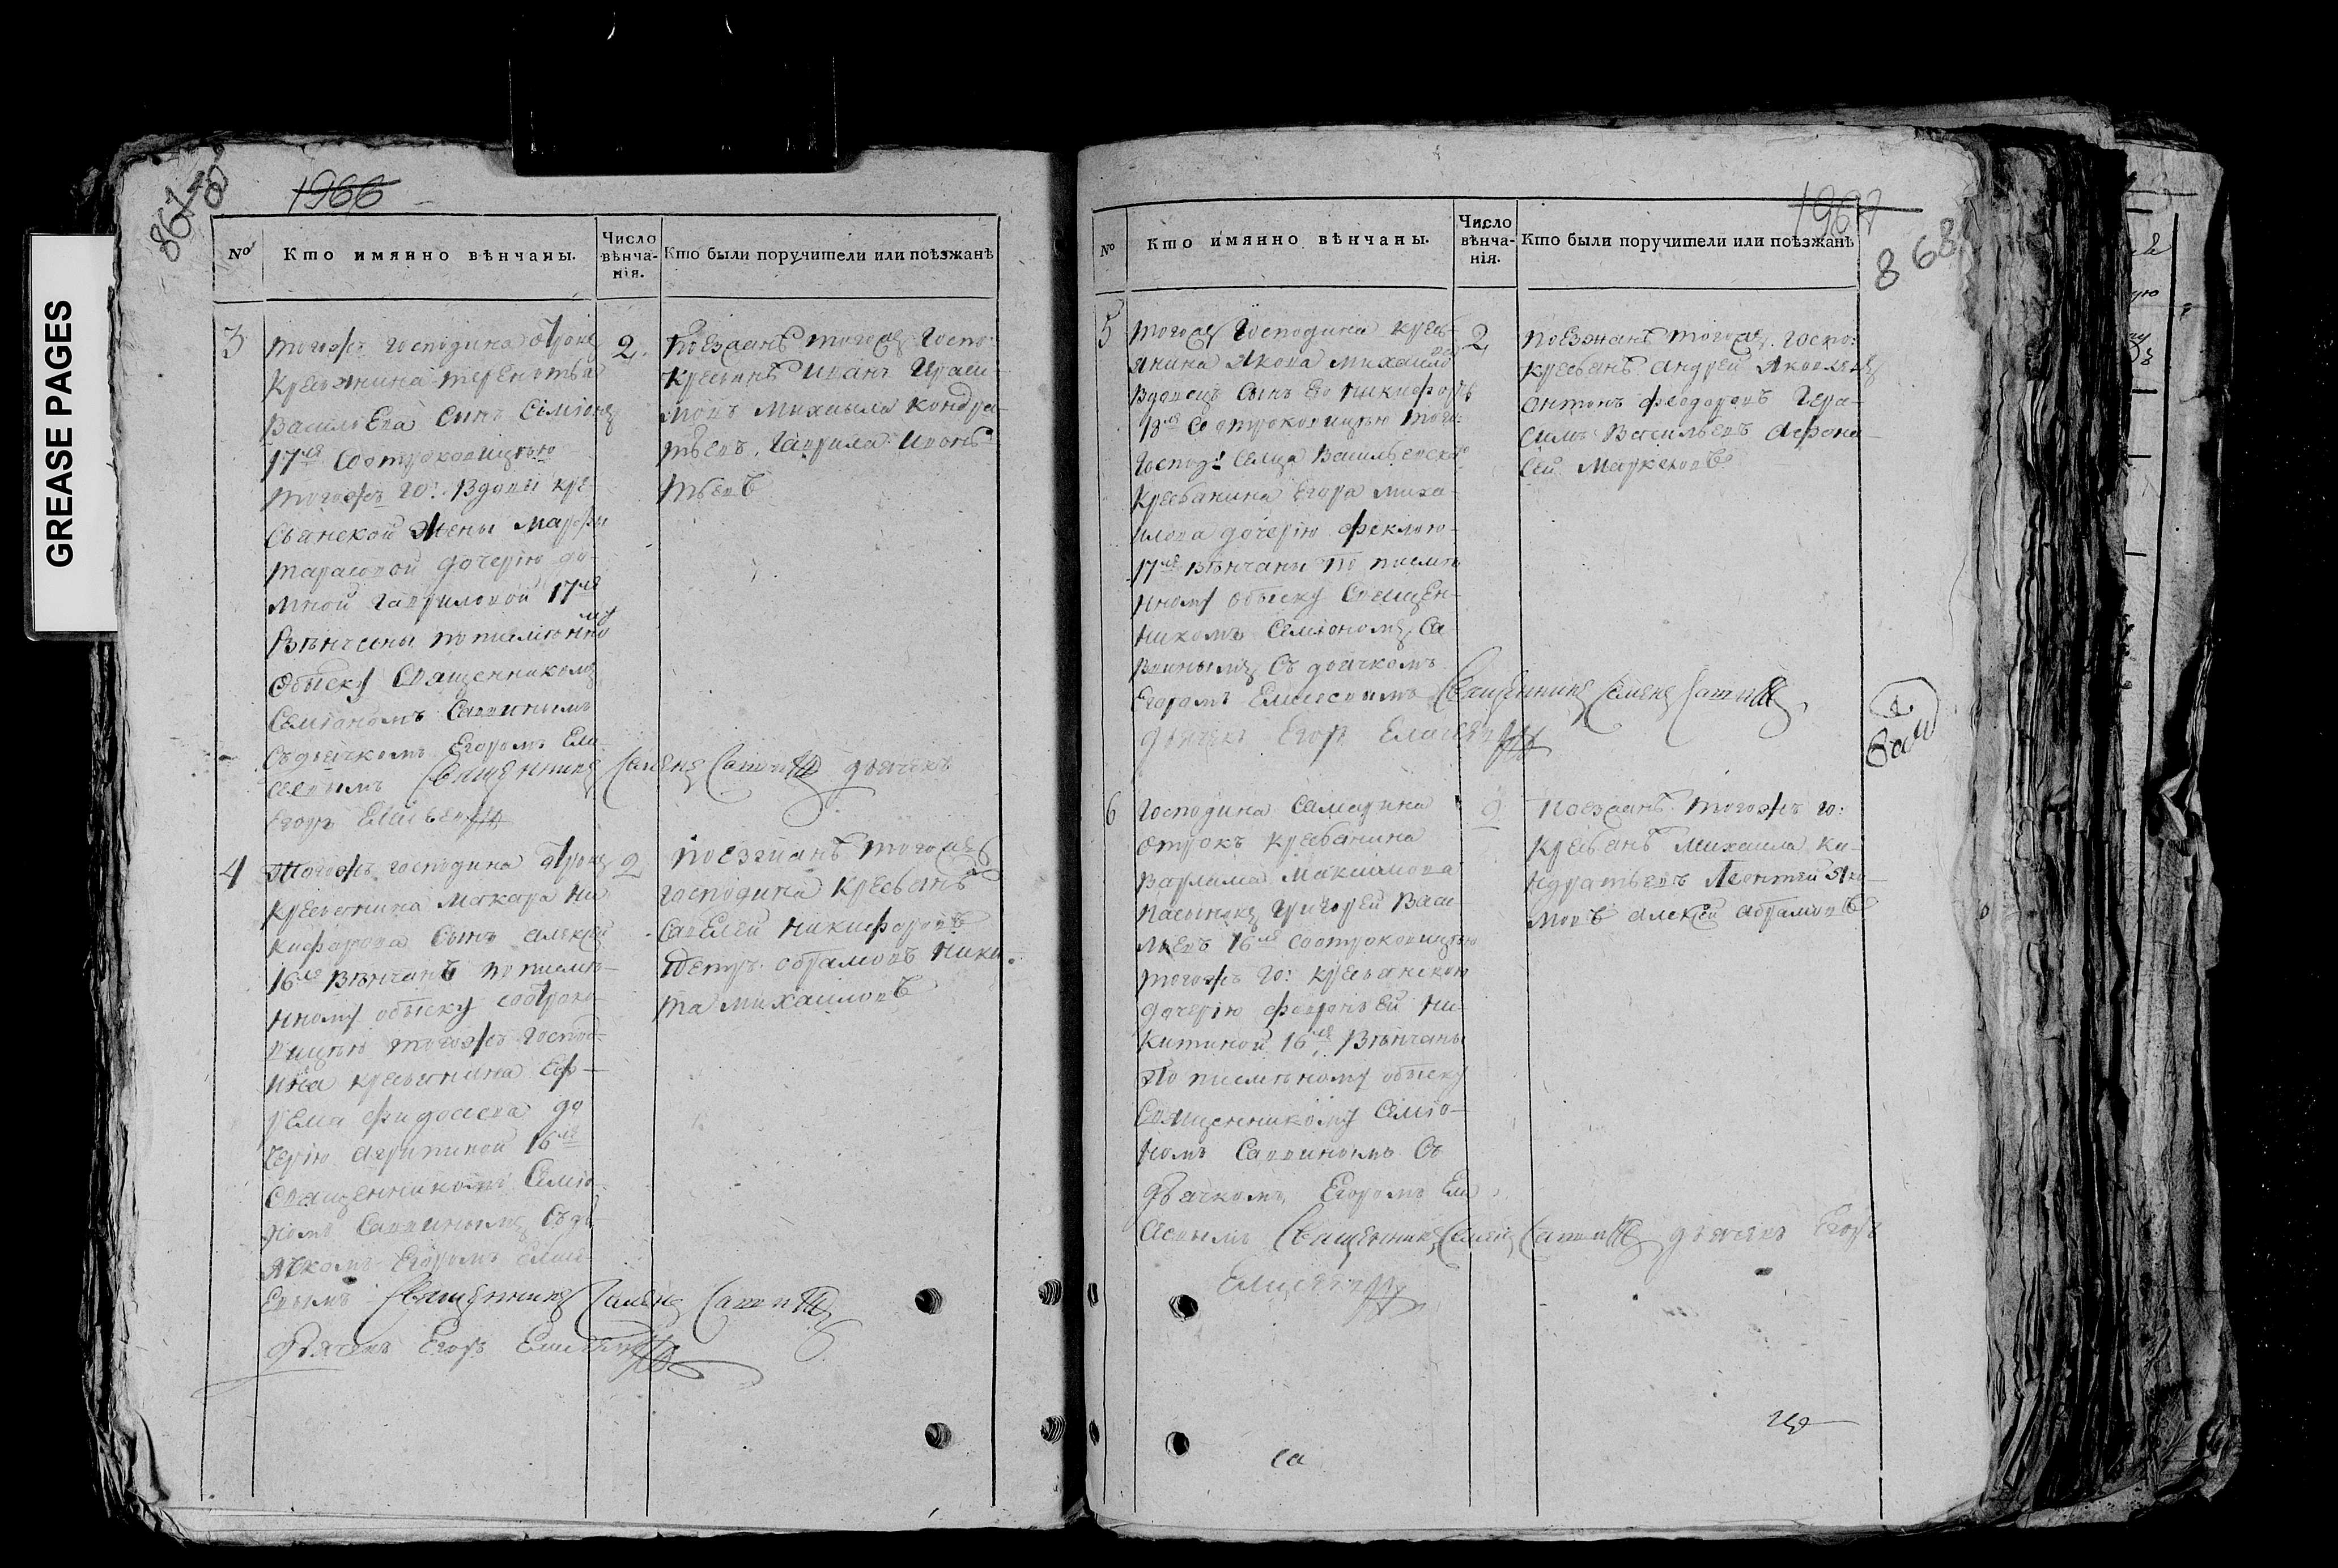 GREASE PAGES
1966
№
Кто имянно вѣнчаны.
Число вѣнча-нія.
Кто были поручители или поѣзжанѣ
3
тогожъ господина отрокъ
крестьянина терентья
Васильева сынъ Симіонъ
17ле соотроковицею
тогожъ го: вдовы кре-
стьянской жены марфы
тарасовой дочерію до-
мной гавриловой 17ле
Вѣнчаны пописменно
му
обыску Священникомъ
Семіономъ Саввинымъ
съдьячкомъ Егоромъ Ели-
сеевымъ Священникъ Семенъ Саввинъ дьячекъ
Егоръ Елисеевъ
2.
поезжанѣ тогожъ госпо:
крестьянѣ иванъ Гераси-
мовъ михаила кондра-
тьевъ, гаврила. Ивонь-
тьевъ
4
Тогожъ господина отрокъ
крестьянина макара ни
кифорова сынъ алексѣй
16ле вѣнчанъ пописме-
нному обыску соотроко-
вицею тогожъ господ-
ина крестьянина Еф-
рема фидосеева до
черію агрипиной 16ле
Священникомъ Семіо-
номъ Саввинымъ съдь-
ячкомъ Егоромъ Елисе-
Евымъ Священникъ Семенъ Саввинъ
дьячекъ Егоръ Елисеевъ
2
поезжанѣ тогожъ
господина крестьянѣ
Савелей никифоровъ
Петръ абрамовъ ники-
та михаиловъ
868
№
Кто имянно вѣнчаны.
Число вѣнча-нія.
Кто были поручители или поѣзжанѣ
5
тогожъ господина кресть-
янина Якова михаило
ва
вдовецъ сынъ Ево никифоръ
18ле Соотроковицею того:
господ: Селца Васильевскаго
крестьянина Егора миха-
илова дочерію феклою-
17ле вѣнчаны по писме
нному обыску Священ-
никомъ Семіономъ Са
ввинымъ съ дьячкомъ
Егоромъ Елисеевымъ Священникъ Семенъ Саввинъ
дьячекъ Егоръ Елисеевъ
2
поезжанѣ тогожъ. госпо:
крестьянѣ андрей Яковлевъ
антонъ феодоровъ Гера-
симъ Васильевъ Афона-
сей Маркеловъ
6
господина Самарина
отрокъ крестьянина
Варлама Максимова
пасынокъ григорей Васи-
льевъ 16ле соотроковицею
тогожъ го: крестьянскою
дочерію февроньей ни-
китиной 16ле вѣнчаны
По писменному обыску
Священникомъ Семіо-
номъ Саввинымъ съ
дьячкомъ Егоромъ Ели
сеевымъ Священникъ Семенъ Саввинъ дьячекъ Егоръ
Елисеевъ
поезжанѣ тогожъ го:
крестьянѣ михаила ко-
ндратьевъ Леонтей Яко-
мовъ алексѣй абрамовъ
са